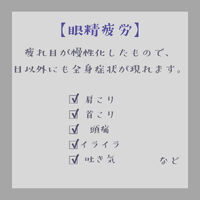 【眼精疲労】
疲れ目が慢性化したもので、
目以外にも全身症状が現れます。
☑ 肩こり
☑ 首こり
☑ 頭痛
☑ イライラ
☑ 吐き気 など